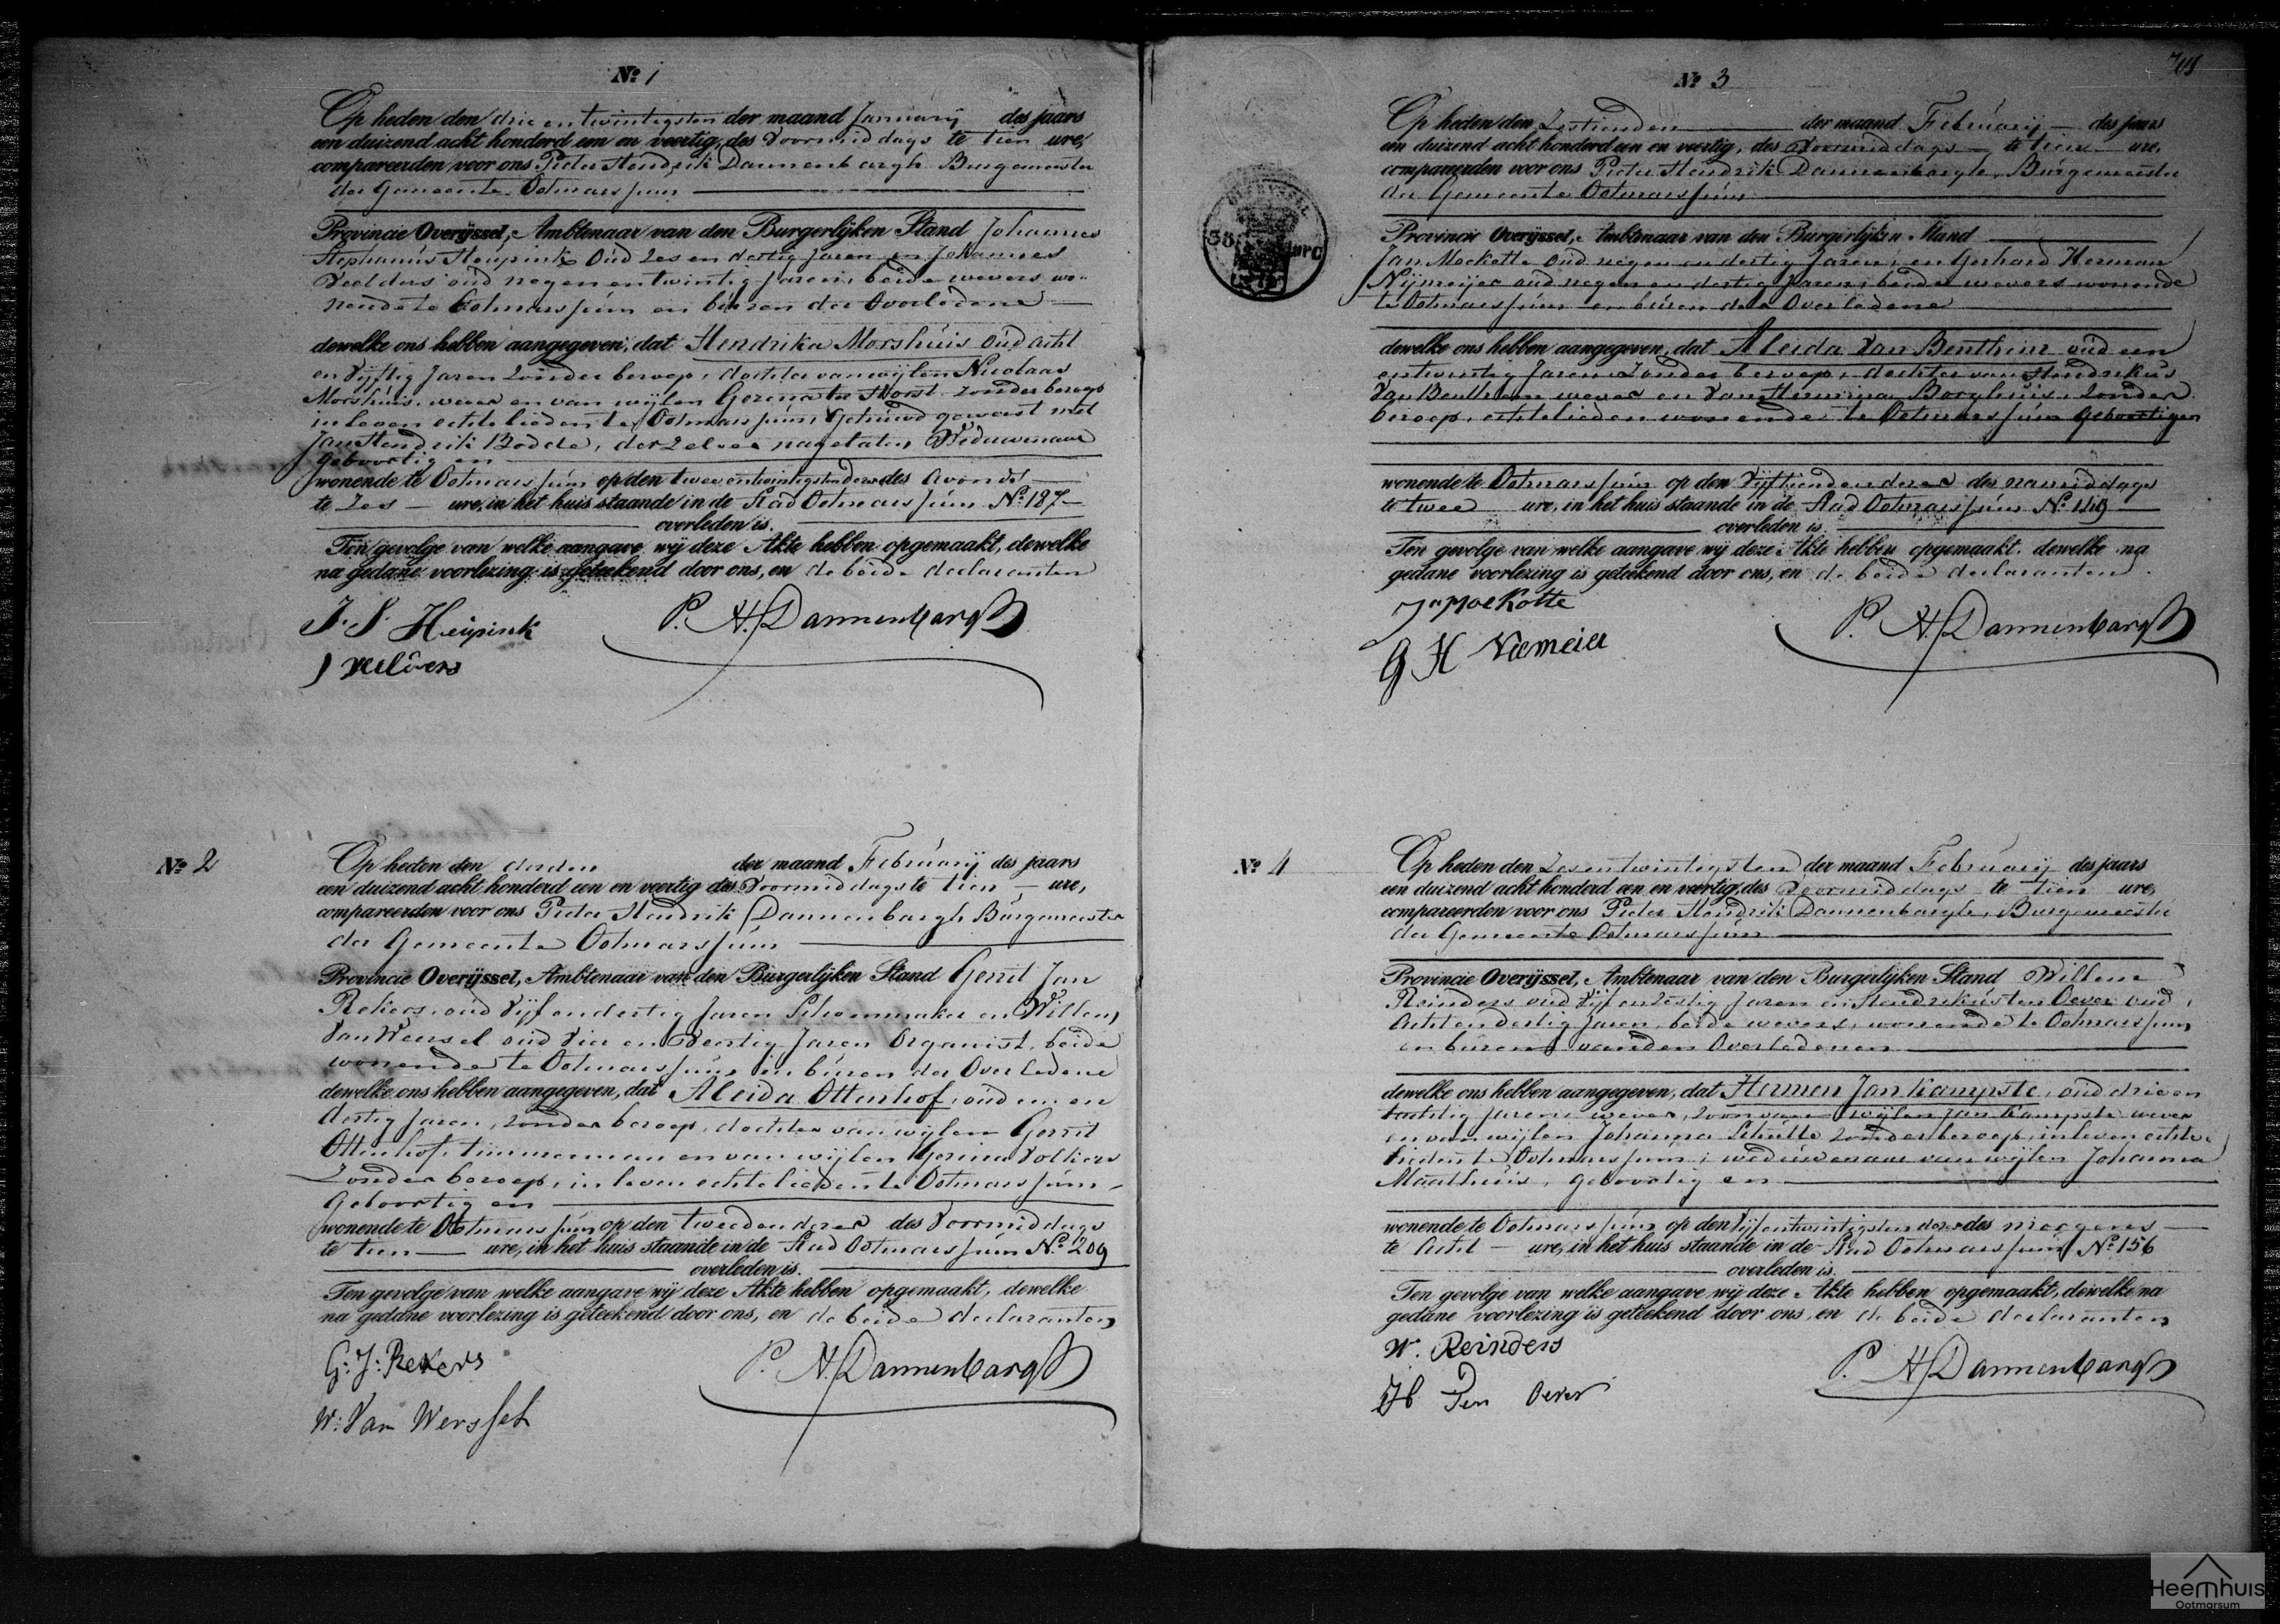 Nº 1
Op heden den drie en twintigsten der maand Januarij des jaars
een duizend acht honderd een en veertig, des Voormiddags te tien ure,
compareerden voor ons Pieter Hendrik Dannenbargh Burgemeester
der Gemeente Ootmarssum
Provincie Overijssel, Ambtenaar van den Burgerlijken Stand Johannes
Stephanus Heupink Oud Zes en dertig Jaren en Johannes
Veelders oud negen en twintig Jaren, beide wevers wo-
nende te Ootmarssum en buren der Overledene
dewelke ons hebben aangegeven, dat Hendrika Morshuis Oud acht
en Vijftig Jaren Zonder beroep, dochter van wijlen Nicolaas
Morshuis, wever en van wijlen Gezina ter Horst zonder beroep
in leven echtelieden te Ootmarssum, Gehuwd geweest met
Jan Hendrik Bodde, derzelver nagelaten Weduwenaar
Geboortig en
wonende te Ootmarssum op den twee en twintigsten dezer des Avonds
te Zes ure, in het huis staande in de Stad Ootmarssum Nº 187
overleden is.
Ten gevolge van welke aangave wij deze Akte hebben opgemaakt, dewelke
na gedane voorlezing is geteekend door ons, en de beide declaranten
J. S. Heupink P. H. Dannenbargh
J Veelders
Nº 2
Op heden den derden der maand Februarij des jaars
een duizend acht honderd een en veertig des Voormiddags te tien ure,
compareerden voor ons Pieter Hendrik Dannenbargh Burgemeester
der Gemeente Ootmarssum
Provincie Overijssel, Ambtenaar van den Burgerlijken Stand Gerrit Jan
Rekers, oud Vijf en dertig Jaren Schoenmaker en Willem
Van Wersel oud Vier en Veertig Jaren Organist, beide
wonende te Ootmarssum en buren der Overledene
dewelke ons hebben aangegeven, dat Aleida Ottenhof, oud een en
dertig Jaren, zonder beroep, dochter van wijlen Gerrit
Ottenhof, timmerman en van wijlen Gezina Volkers
Zonder beroep, in leven echtelieden te Ootmarssum
Geboortig en
wonende te Ootmarssum op den tweeden dezer des Voormiddags
te tien ure, in het huis staande in de Stad Ootmarssum Nº 209
overleden is.
Ten gevolge van welke aangave wij deze Akte hebben opgemaakt, dewelke
na gedane voorlezing is geteekend door ons, en de beide declaranten
G: J: Rekers P. H. Dannenbargh
W: Van Werssel
Nº 3
Op heden den Zestienden der maand Februarij des jaars
een duizend acht honderd een en veertig, des Voormiddags te tien ure,
compareerden voor ons Pieter Hendrik Dannenbargh, Burgemeester
der Gemeente Ootmarssum
Provincie Overijssel, Ambtenaar van den Burgerlijken Stand
Jan Mockotte oud negen en dertig Jaren, en Gerhard Herman
Nijmeijer oud negen en dertig Jaren, beide wevers wonende
te Ootmarssum en buren der Overledene
dewelke ons hebben aangegeven, dat Aleida Van Benthem oud een
en twintig Jaren Zonder beroep, dochter van Hendrikus
Van Benthem wever en Van Hermina Borghuis, Zonder
beroep, echtelieden wonende te Ootmarssum Geboortig en
wonende te Ootmarssum op den Vijftienden dezer des namiddags
te twee ure, in het huis staande in de Stad Ootmarssum Nº 149
overleden is.
Ten gevolge van welke aangave wij deze Akte hebben opgemaakt, dewelke na
gedane voorlezing is geteekend door ons, en de beide declaranten
Jn Mockotte P. H. Dannenbargh
G H Niemeier
Nº 4
Op heden den Zes en twintigsten der maand Februarij des jaars
een duizend acht honderd een en veertig, des Voormiddags te tien ure,
compareerden voor ons Pieter Hendrik Dannenbargh, Burgemeester
der Gemeente Ootmarssum
Provincie Overijssel, Ambtenaar van den Burgerlijken Stand Willem
Reinders oud Vijf en zestig Jaren en Hendrikus ten Oever oud
Acht en dertig Jaren, beide wevers, wonende te Ootmarssum
en buren van den Overledenen
dewelke ons hebben aangegeven, dat Hermen Jan Kampste, oud drie en
tachtig Jaren, wever, zoon van wijlen Jan Kampste wever
en van wijlen Johanna Schutte zonder beroep, in leven echte-
lieden te Ootmarssum, weduwenaar van wijlen Johanna
Maathuis, geboortig en
wonende te Ootmarssum op den Vijf en twintigsten dezer des morgens
te Acht ure, in het huis staande in de Stad Ootmarssum Nº 156
overleden is.
Ten gevolge van welke aangave wij deze Akte hebben opgemaakt, dewelke na
gedane voorlezing is geteekend door ons, en de beide declaranten
W. Reinders P. H. Dannenbargh
H Ten Oever
Heemhuis
Ootmarsum